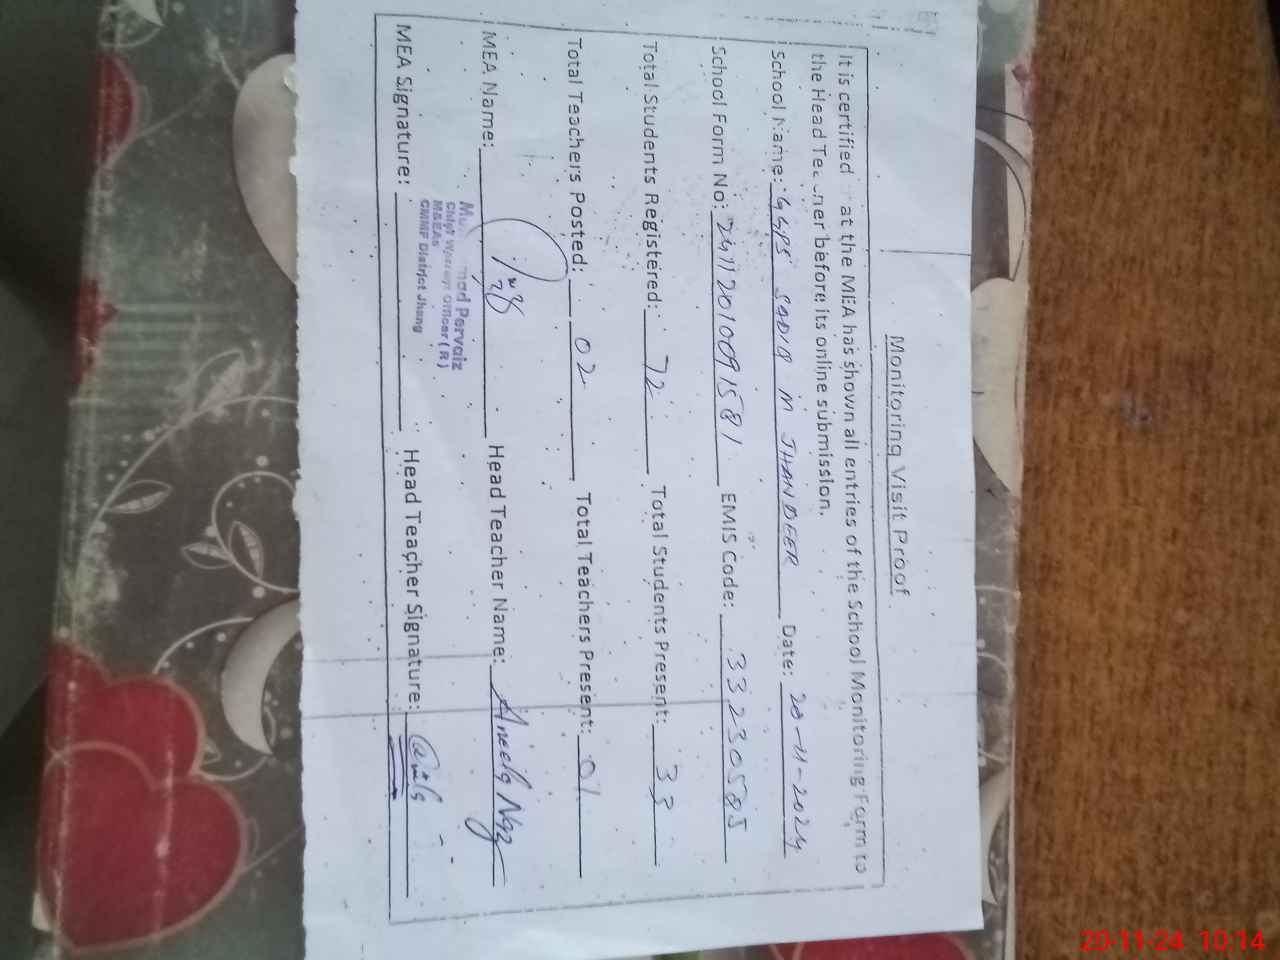 Monitoring Visit Proof
It is certified at the MEA has shown all entries of the School Monitoring Form to
the Head Teacher before its online submission.
School Name: GGPS SADIQ M JHANDEER Date: 20-11-2024
School Form No: 24112010091581 EMIS Code: 33230585
Total Students Registered: 72 Total Students Present: 33
Total Teachers Posted: 02 Total Teachers Present: 01
MEA Name: Head Teacher Name: Aneela Naz
Pervaiz
Officer (R)
M&EAs
CMMF District Jhang
MEA Signature: Head Teacher Signature:
20-11-24 10:14